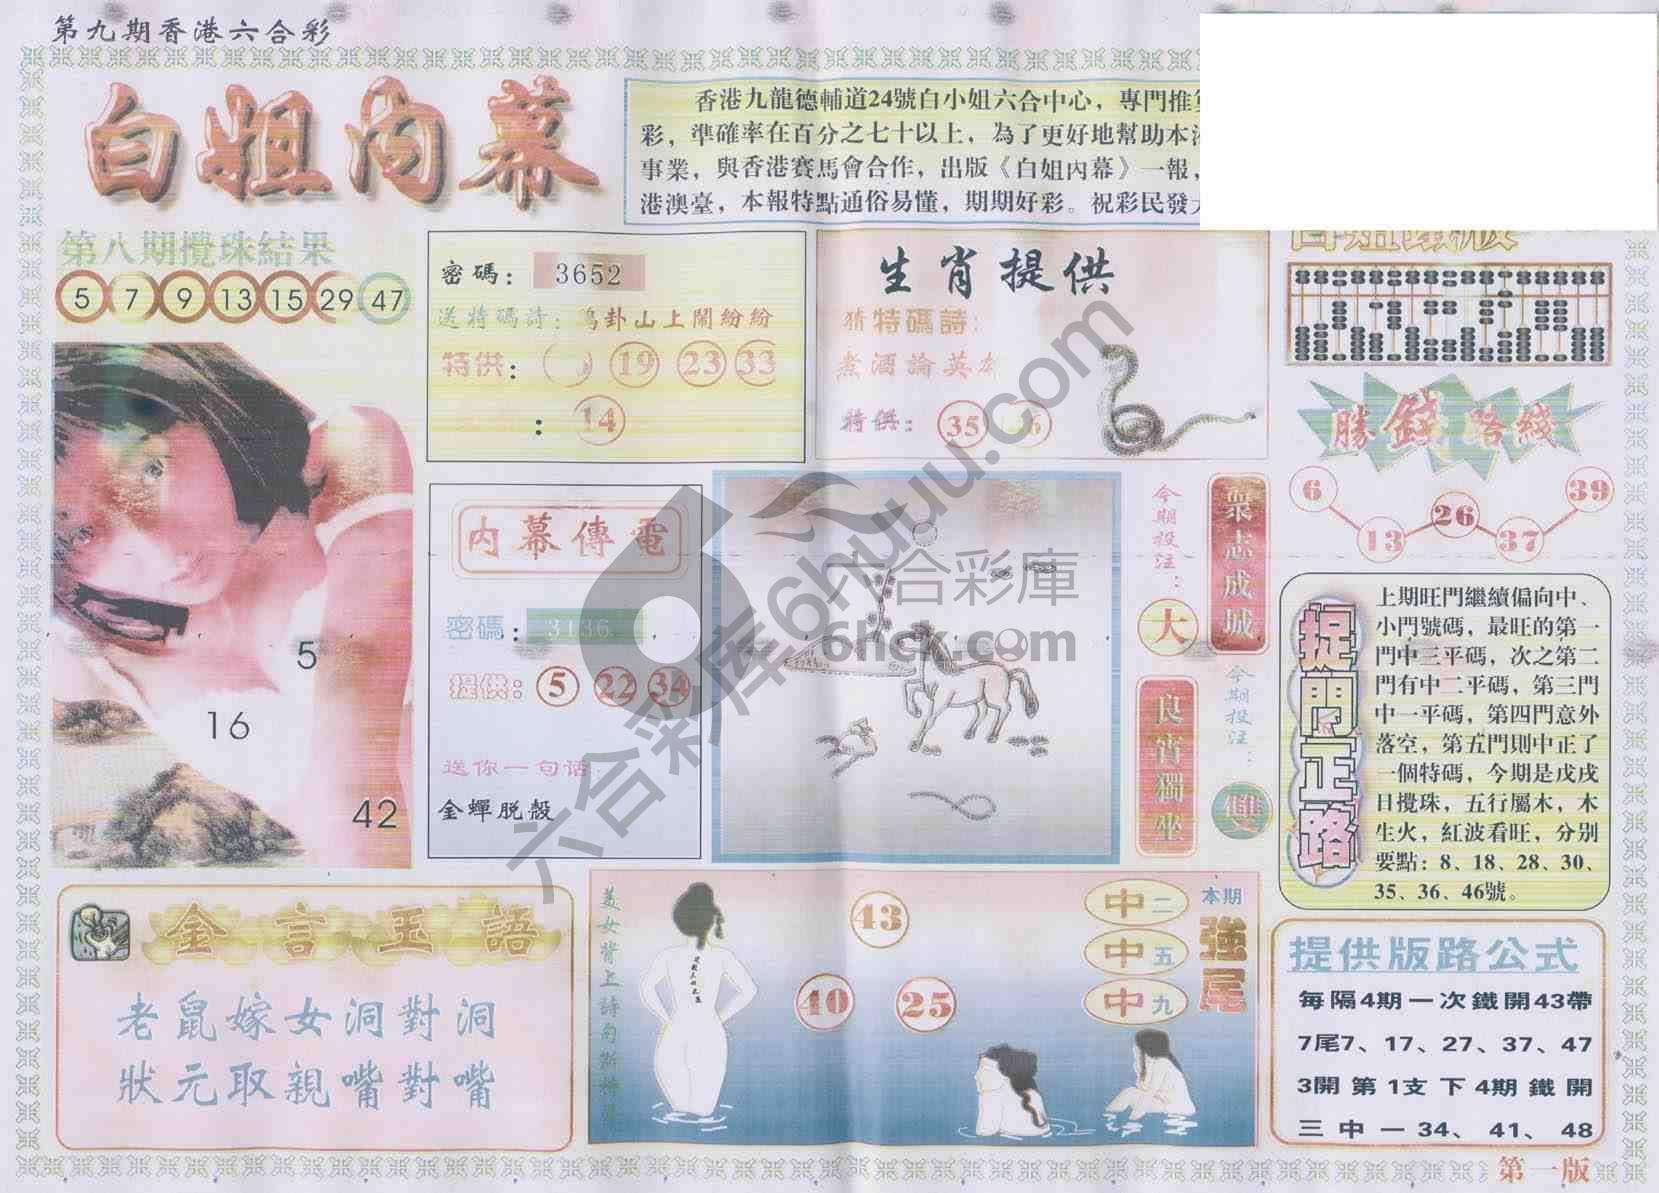 第九期香港六合彩
白姐内幕
香港九龍德輔道24號白小姐六合中心，專門推
彩，準確率在百分之七十以上，為了更好地幫助本
事業，與香港賽馬會合作，出版《白姐內幕》一報，
港澳臺，本報特點通俗易懂，期期好彩。祝彩民發
第八期攪珠結果
5 7 9 13 15 29 47
密碼： 3652
送特碼詩： 卦山上閙紛紛
特供： 19 23 33
： 14
生肖提供
猜特碼詩：
煮酒論英雄
特供： 35 6
勝錢路綫
6 13 26 37 39
5
16
42
内幕傳電
密碼： 3136
提供： 5 22 34
送你一句话：
金蟬脱殼
今期投注：大
衆志成城
良宵獨坐
今期投注：雙
捉門正路
上期旺門繼續偏向中、
小門號碼，最旺的第一
門中三平碼，次之第二
門有中二平碼，第三門
中一平碼，第四門意外
落空，第五門則中正了
一個特碼，今期是戊戌
日攪珠，五行屬木，木
生火，紅波看旺，分別
要點：8、18、28、30、
35、36、46號。
金言玉語
老鼠嫁女洞對洞
狀元取親嘴對嘴
美女背上詩句
43
40 25
本期強尾
中二
中五
中九
提供版路公式
每隔4期一次鐵開43帶
7尾7、17、27、37、47
3開第1支下4期鐵開
三中一34、41、48
第一版
六合彩库6huu.com
六合彩庫
6hck.com